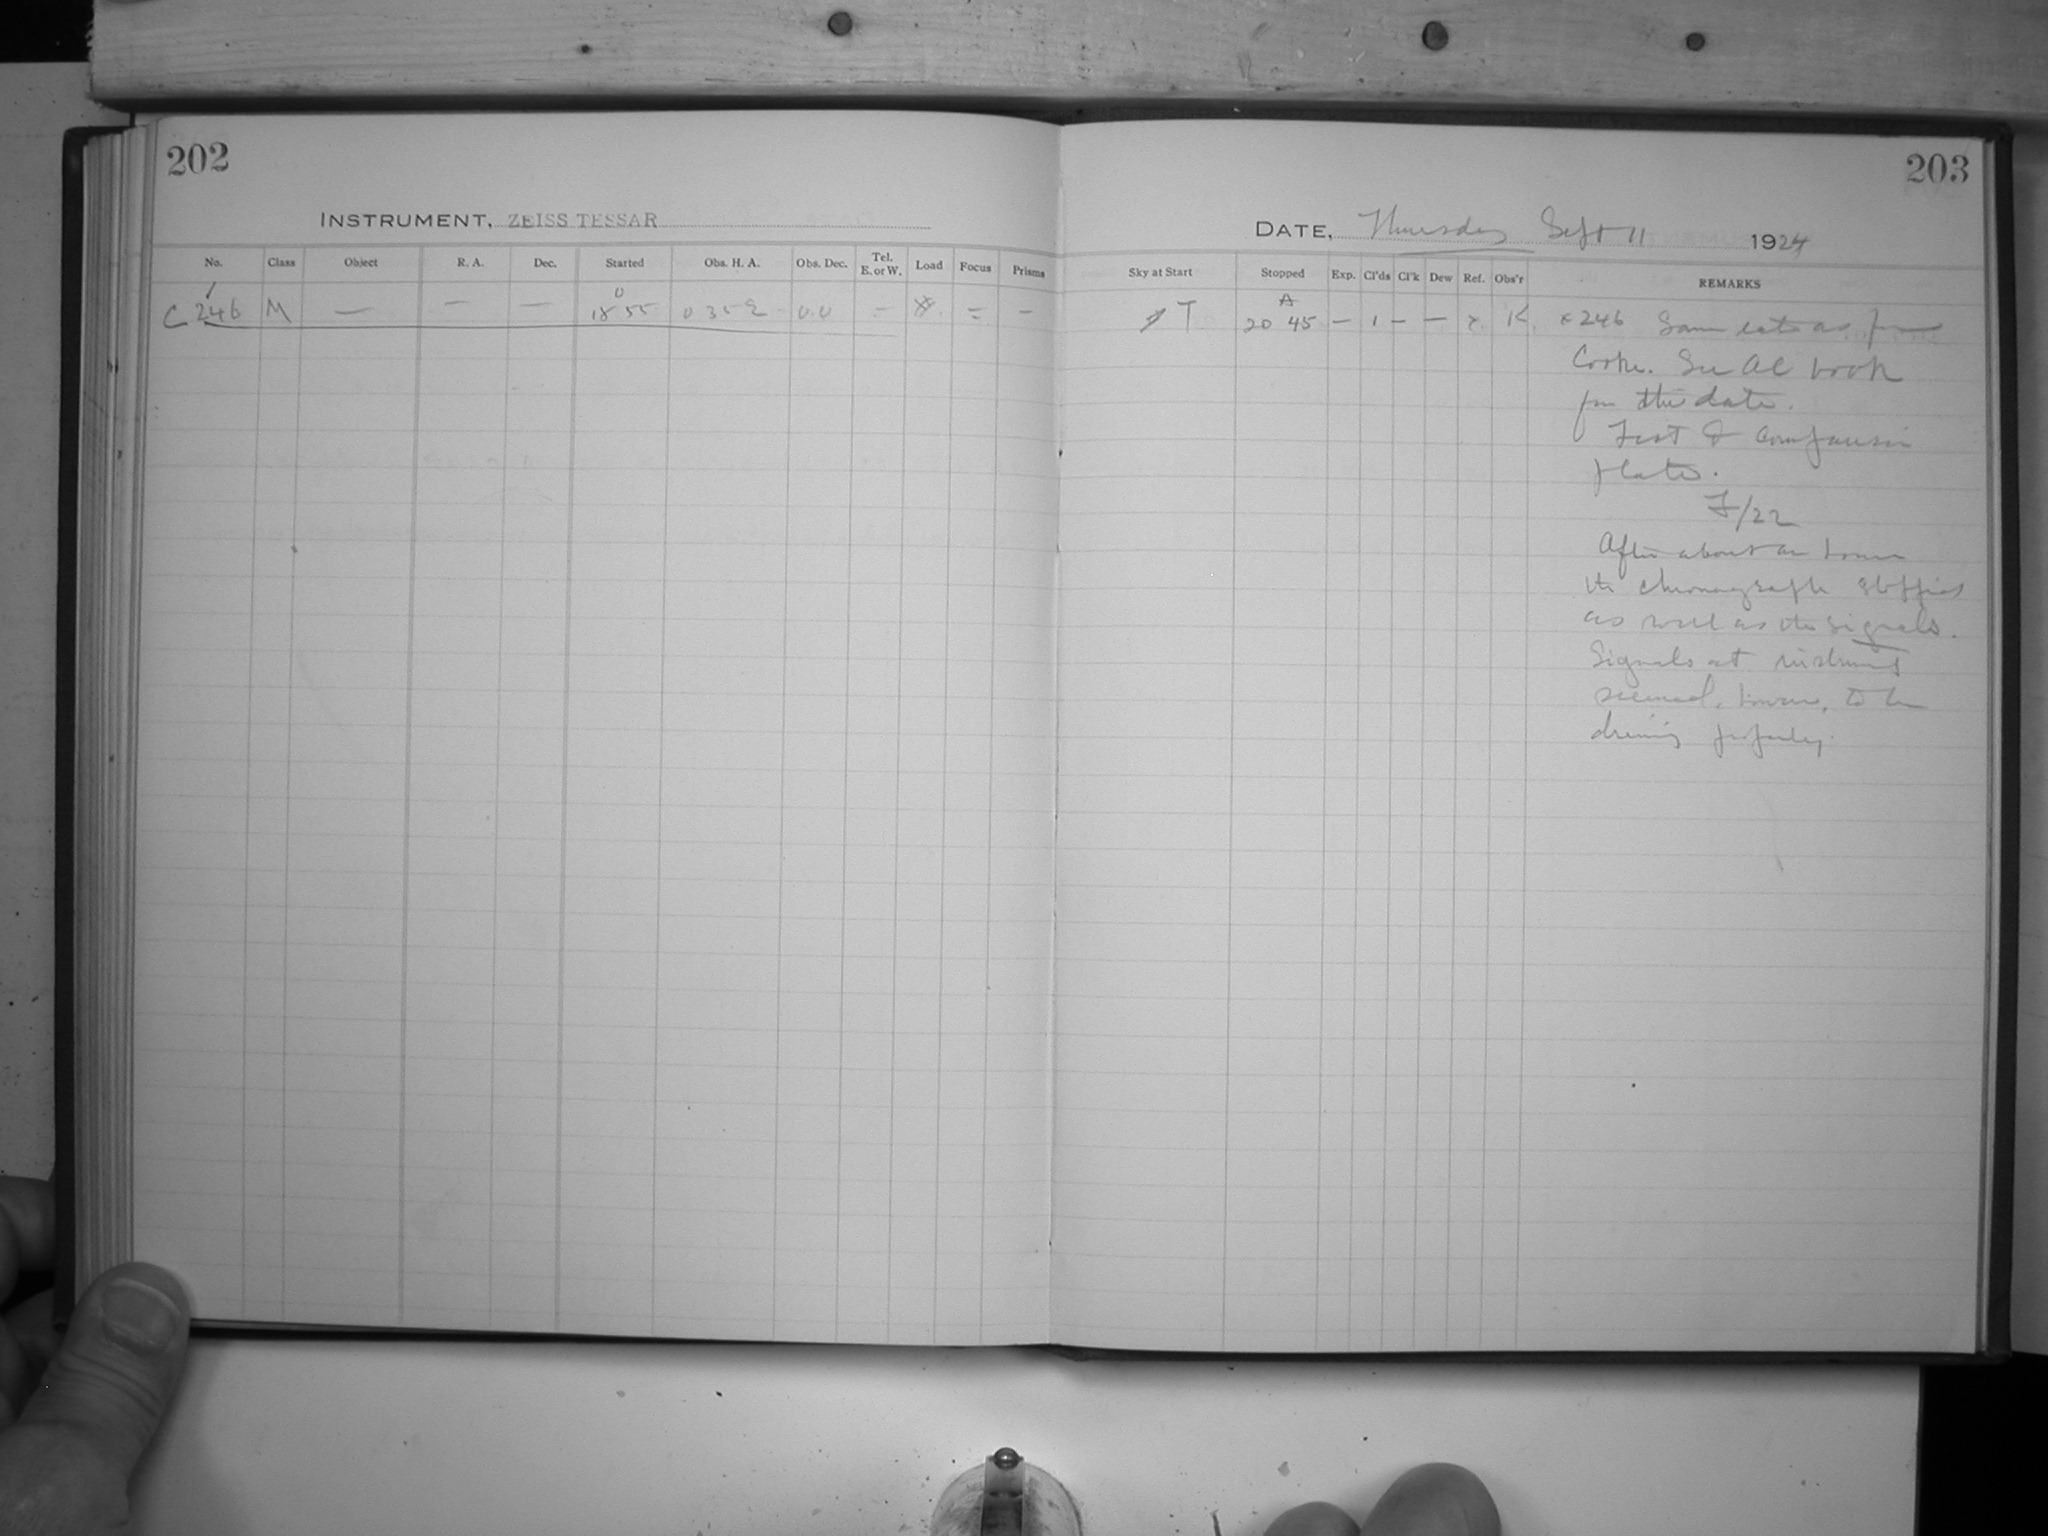 202
203
INSTRUMENT, ZEISS TESSAR
DATE, Thursday Sept 11 1924
No. Class Object R. A. Dec. Started Obs. H. A. Obs. Dec. Tel. E. or W. Load Focus Prisms
Sky at Start Stopped Exp. Cl'ds Cl'k Dew Ref. Obs'r REMARKS
C 246 M — — — 18 55 0 35 0.0 — —
T 20 45 — 1 — — K 246 Same as from
Cooke. See AC book
for this date.
Test & Comparison
plate.
F/22
After about an hour
the chronograph stopped
as well as the signals.
Signals at instrument
seemed, however, to be
driving properly.